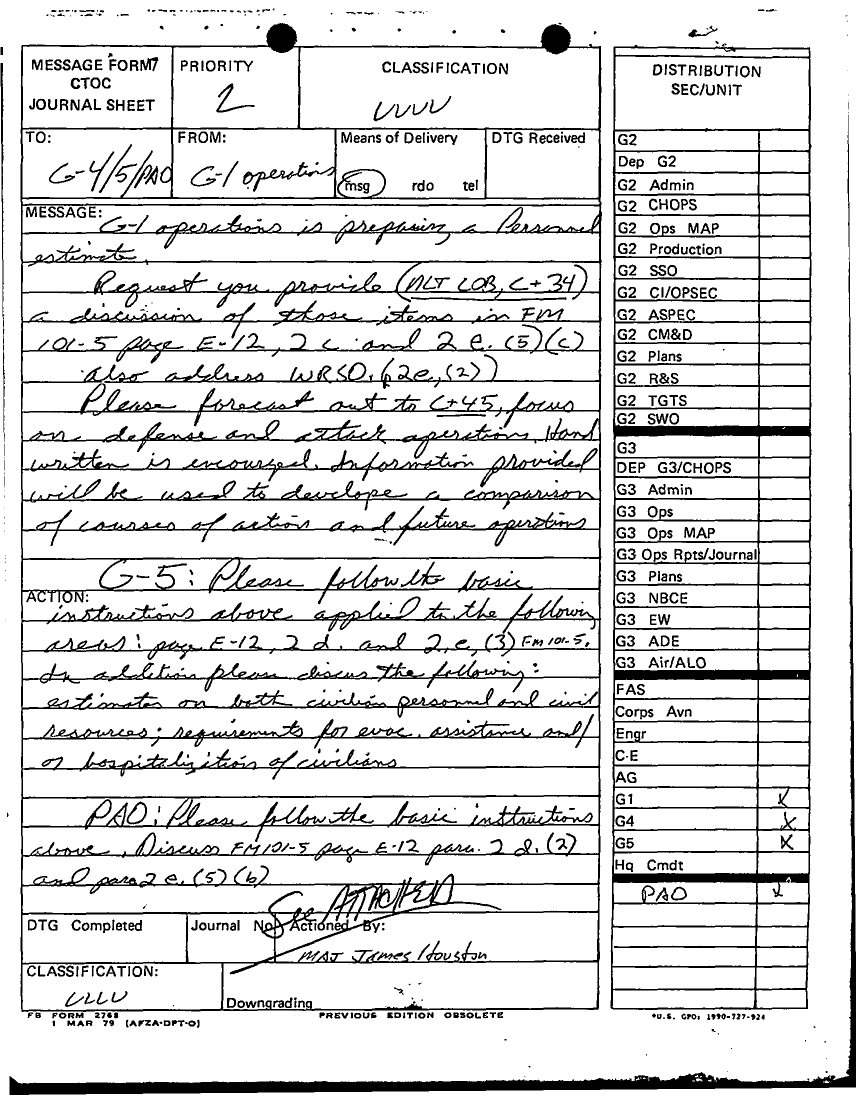 MESSAGE FORM7
CTOC
JOURNAL SHEET
PRIORITY
2
CLASSIFICATION
UUUU
TO:
G-4/5/PAO
FROM:
G-1 operations
Means of Delivery
msg rdo tel
DTG Received
MESSAGE:
G-1 operations is preparing a Personnel
estimate.
Request you provide (NLT COB, C+34)
a discussion of those items in FM
101-5 page E-12, 2 c. and 2 e. (5)(c)
also address WRSO. (p2e,(2))
Please forecast out to C+45, focus
on defense and attack operations. Hand
written is encourged. Information provided
will be used to develope a comparison
of courses of action and future operations
G-5: Please follow the basic
ACTION:
instructions above applied to the following
areas: page E-12, 2 d. and 2, e, (3) FM 101-5.
In addition please discuss the following:
estimates on both civilian personnel and civil
resources; requirements for evac. assistance and/
or hospitalization of civilians
PAO: Please follow the basic instructions
above. Discuss FM101-5 page E-12 para. 2 d. (2)
and para 2 e. (5) (b)
See ATTACHED
DTG Completed
Journal No.
Actioned By:
MAJ James Houston
CLASSIFICATION:
UUUU
Downgrading
FB FORM 2768
1 MAR 79 (AFZA-DPT-O)
PREVIOUS EDITION OBSOLETE
DISTRIBUTION
SEC/UNIT
G2
Dep G2
G2 Admin
G2 CHOPS
G2 Ops MAP
G2 Production
G2 SSO
G2 CI/OPSEC
G2 ASPEC
G2 CM&D
G2 Plans
G2 R&S
G2 TGTS
G2 SWO
G3
DEP G3/CHOPS
G3 Admin
G3 Ops
G3 Ops MAP
G3 Ops Rpts/Journal
G3 Plans
G3 NBCE
G3 EW
G3 ADE
G3 Air/ALO
FAS
Corps Avn
Engr
C-E
AG
G1 X
G4 X
G5 X
Hq Cmdt
PAO X
*U.S. GPO: 1990-727-924